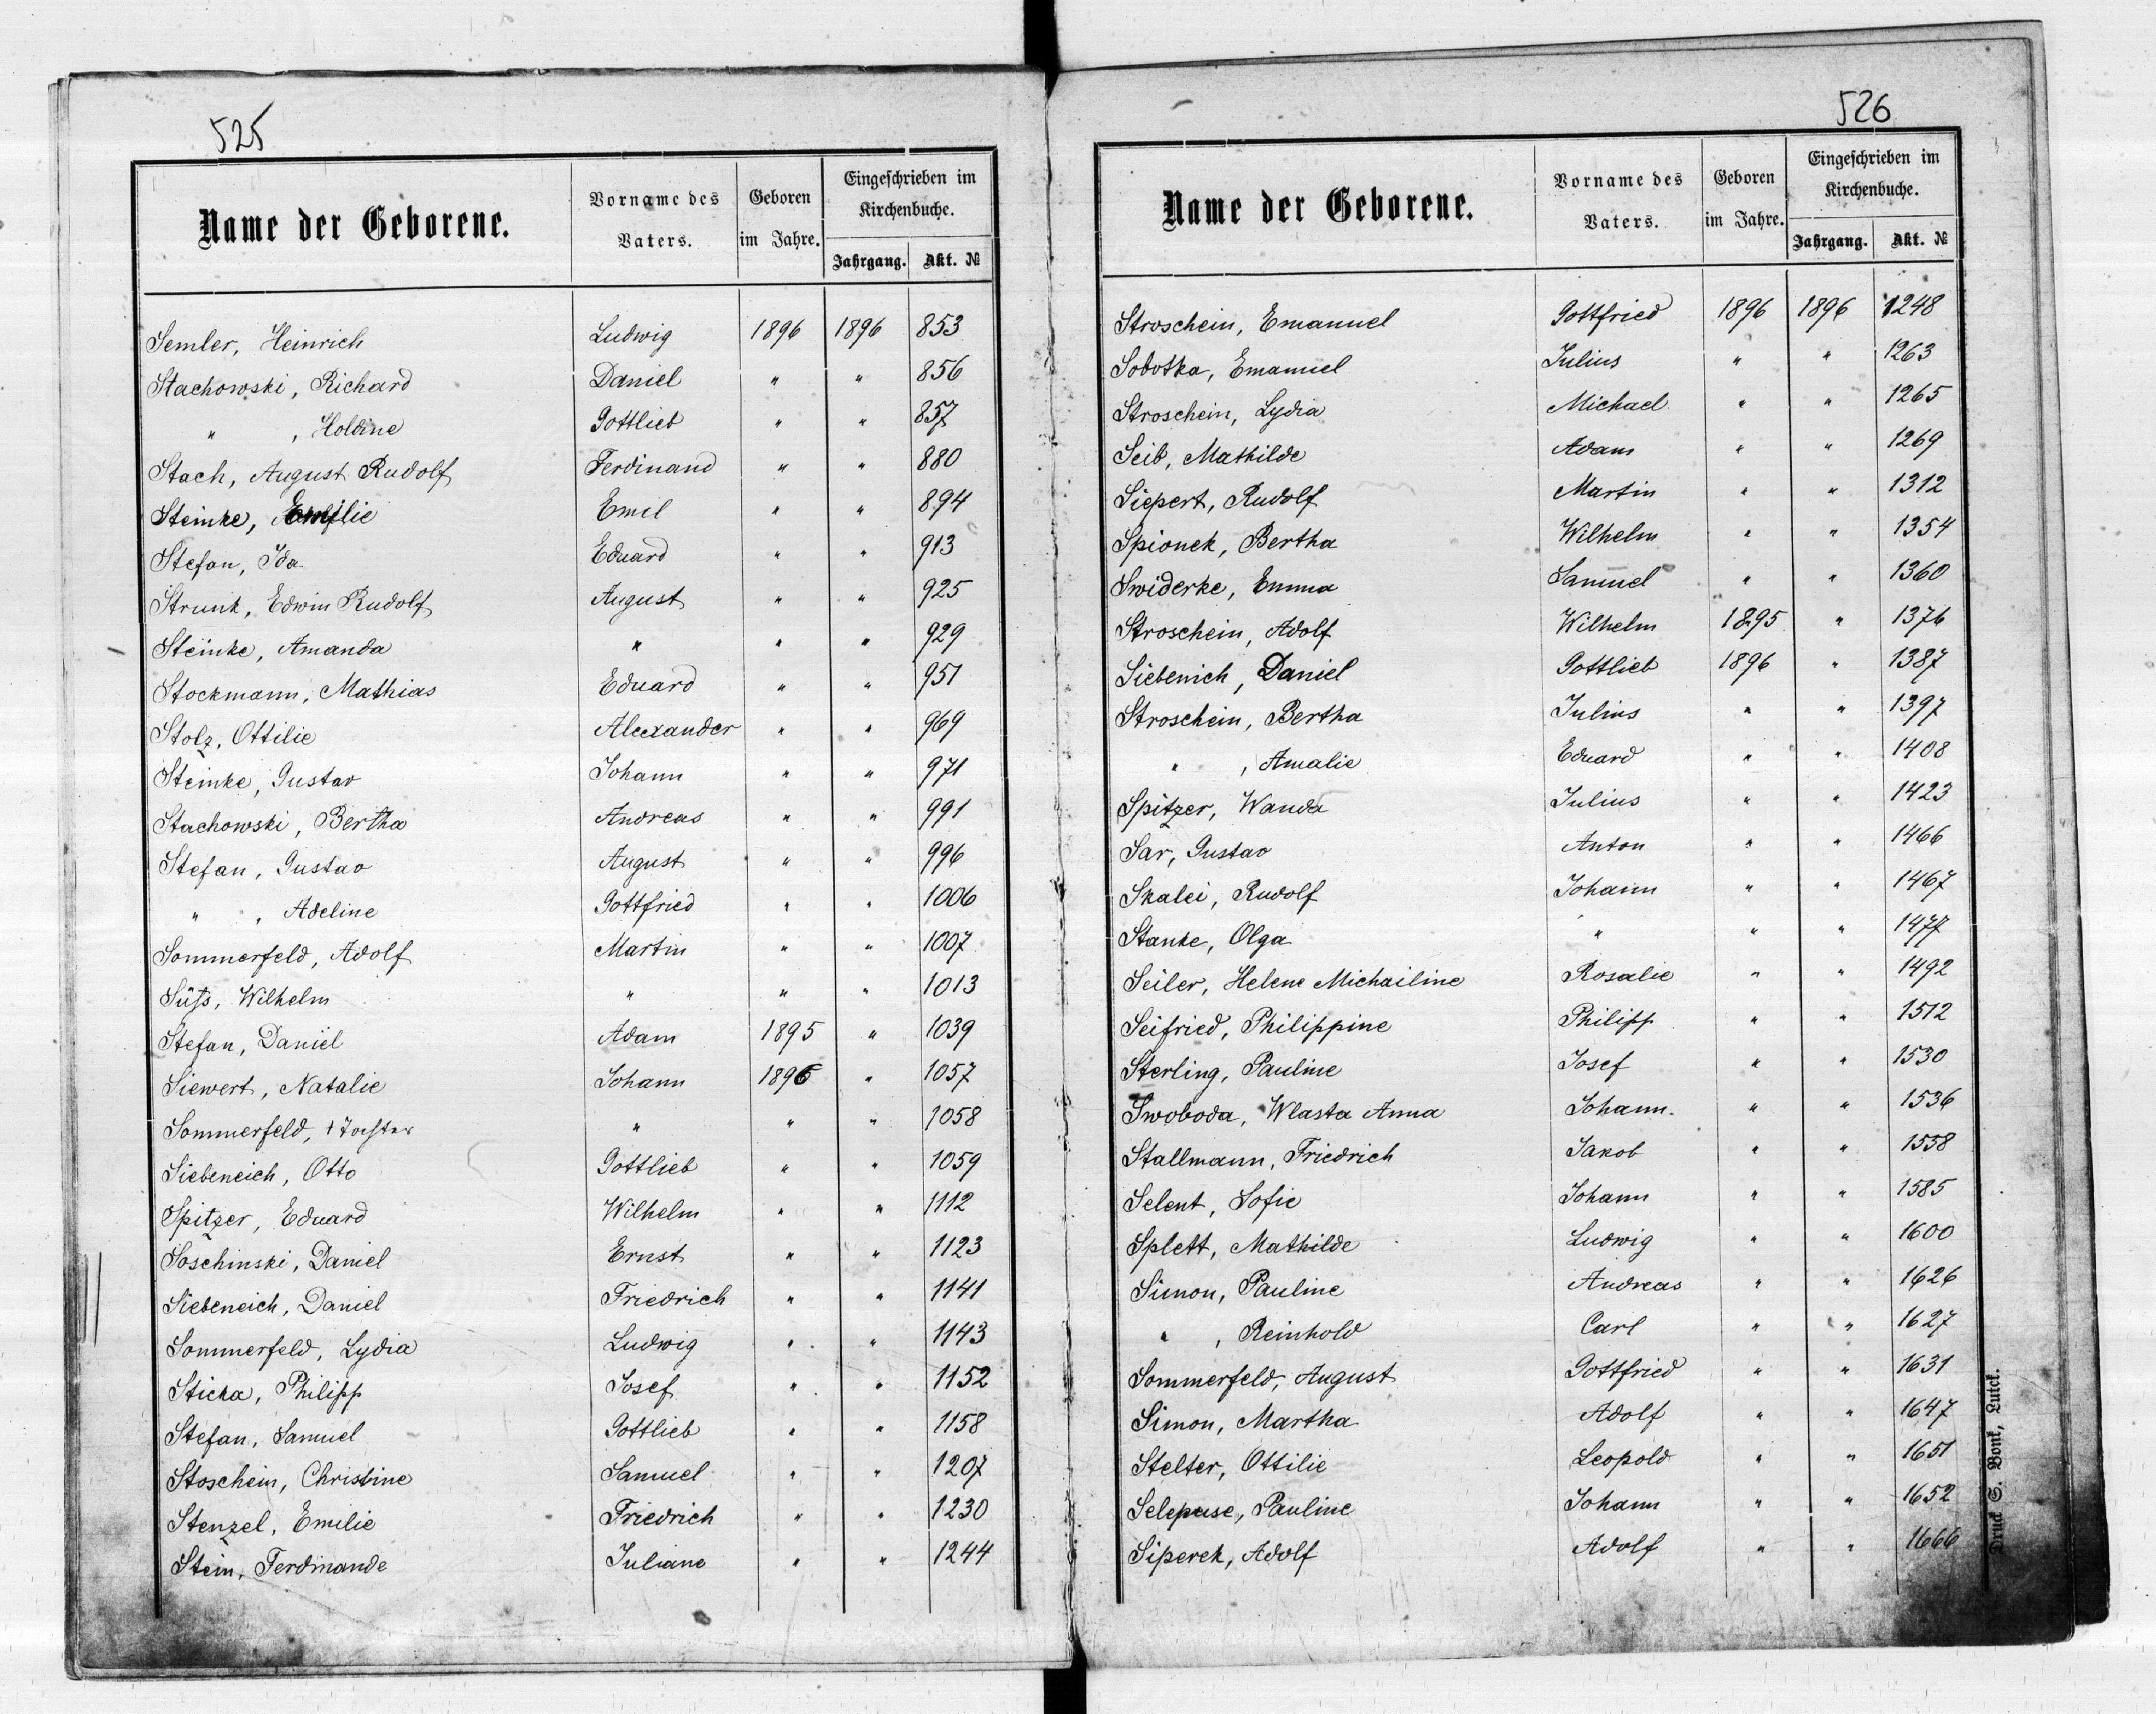 525
Name der Geborene. Vorname des Vaters. Geboren im Jahre. Eingeschrieben im Kirchenbuche. Jahrgang. Akt. №
Semler, Heinrich Ludwig 1896 1896 853
Stachowski, Richard Daniel " " 856
" , Holdine Gottlieb " " 857
Stach, August Rudolf Ferdinand " " 880
Steinke, Emilie Emil " " 894
Stefan, Ida Eduard " " 913
Strunk, Edwin Rudolf August " " 925
Steinke, Amanda " " " 929
Stockmann, Mathias Eduard " " 951
Stolz, Ottilie Alexander " " 969
Steinke, Gustav Johann " " 971
Stachowski, Bertha Andreas " " 991
Stefan, Gustav August " " 996
" , Adeline Gottfried " " 1006
Sommerfeld, Adolf Martin " " 1007
Süß, Wilhelm " " " 1013
Stefan, Daniel Adam 1895 " 1039
Siewert, Natalie Johann 1896 " 1057
Sommerfeld, † Tochter " " " 1058
Siebeneich, Otto Gottlieb " " 1059
Spitzer, Eduard Wilhelm " " 1112
Soschinski, Daniel Ernst " " 1123
Siebeneich, Daniel Friedrich " " 1141
Sommerfeld, Lydia Ludwig " " 1143
Sticka, Philipp Josef " " 1152
Stefan, Samuel Gottlieb " " 1158
Stoschein, Christine Samuel " " 1207
Stenzel, Emilie Friedrich " " 1230
Stein, Ferdinande Juliane " " 1244
526
Name der Geborene. Vorname des Vaters. Geboren im Jahre. Eingeschrieben im Kirchenbuche. Jahrgang. Akt. №
Stroschein, Emanuel Gottfried 1896 1896 1248
Sobotka, Emanuel Julius " " 1263
Stroschein, Lydia Michael " " 1265
Seib, Mathilde Adam " " 1269
Siepert, Rudolf Martin " " 1312
Spionek, Bertha Wilhelm " " 1354
Swiderke, Emma Samuel " " 1360
Stroschein, Adolf Wilhelm 1895 " 1376
Siebenich, Daniel Gottlieb 1896 " 1387
Stroschein, Bertha Julius " " 1397
" , Amalie Eduard " " 1408
Spitzer, Wanda Julius " " 1423
Sar, Gustav Anton " " 1466
Skalei, Rudolf Johann " " 1467
Stanke, Olga " " " 1477
Seiler, Helene Michailine Rosalie " " 1492
Seifried, Philippine Philipp " " 1512
Sterling, Pauline Josef " " 1530
Swoboda, Wlasta Anna Johann. " " 1536
Stallmann, Friedrich Jakob " " 1558
Selent, Sofie Johann " " 1585
Splett, Mathilde Ludwig " " 1600
Simon, Pauline Andreas " " 1626
" , Reinhold Carl " " 1627
Sommerfeld, August Gottfried " " 1631
Simon, Martha Adolf " " 1647
Stelter, Ottilie Leopold " " 1651
Selepuse, Pauline Johann " " 1652
Siperek, Adolf Adolf " " 1666
Druck S. Bonk, Lutck.